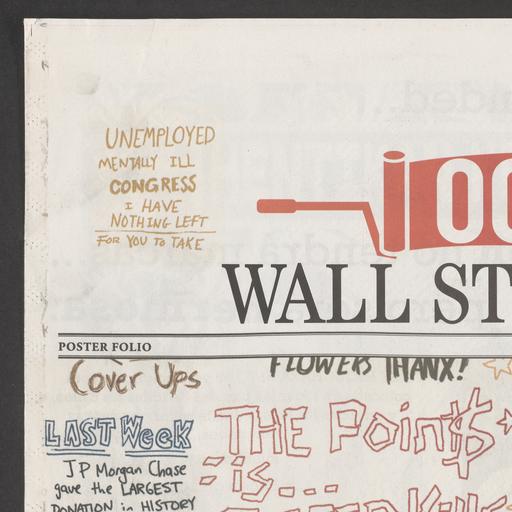 UNEMPLOYED
MENTALLY ILL
CONGRESS
I HAVE
NOTHING LEFT
FOR YOU TO TAKE
OC
WALL ST
POSTER FOLIO
Cover Ups
FLOWERS THANX!
LAST Week
JP Morgan Chase
gave the LARGEST
DONATION in HISTORY
THE Point$
is...